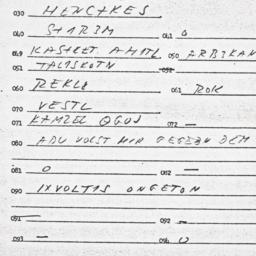 030 HENCKES
040 STARIM 041 0
049 KASTEET AMTL 050 ARBIKAN
051 TALISKOTN 052
060 REKLE 061 ROK
070 VESTL
071 KAMZEL OGUS 072 —
080 ADV VOLST MIR GEGEBN DEM
081 0 082 —
090 IXVOLTAS ONGETON
091 — 092 —
093 — 094 0